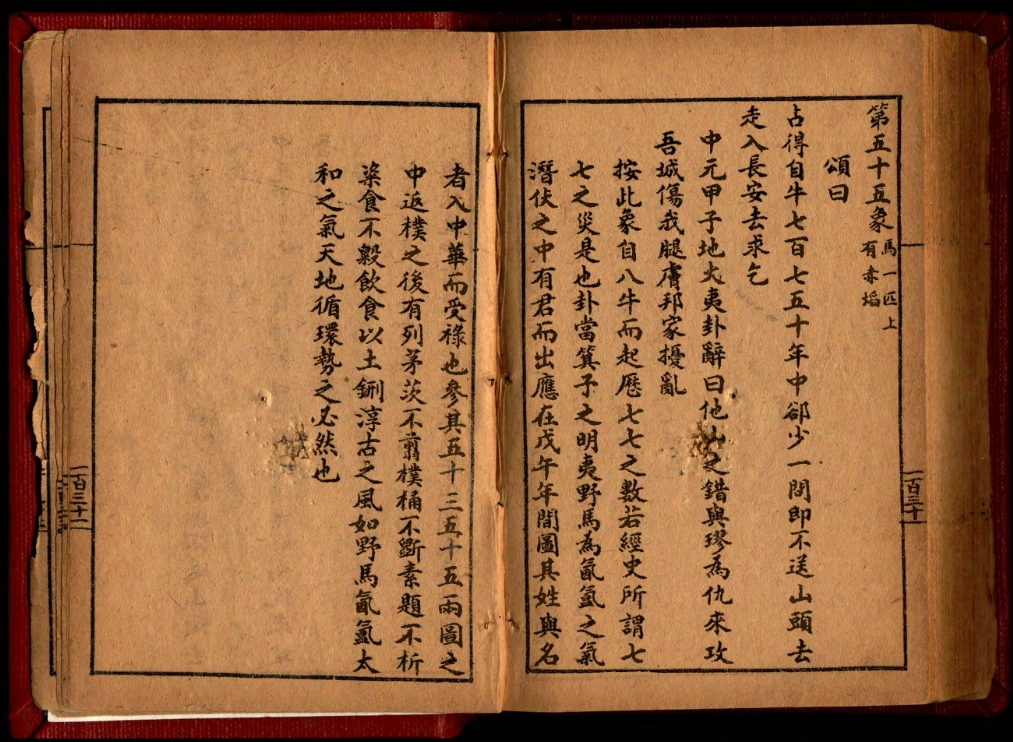 第五十五象 馬一匹上有赤墖
頌曰
占得自牛七百七五十年中郤少一問即不送山頭去
走入長安去求乞
中元甲子地火夷卦辭曰他山之錯與璆為仇來攻
吾城傷我腿膚邦家擾亂
按此象自八牛而起歷七七之數若經史所謂七
七之災是也卦當箕子之明夷野馬為氤氳之氣
潛伏之中有君而出應在戊午年間圖其姓與名
一百三十
者入中華而受祿也參其五十三五十五兩圖之
中返樸之後有列茅茨不翦樸桷不斷素題不枅
粢食不糓飲食以土鉶淳古之風如野馬氤氳太
和之氣天地循環勢之必然也
一百三十一